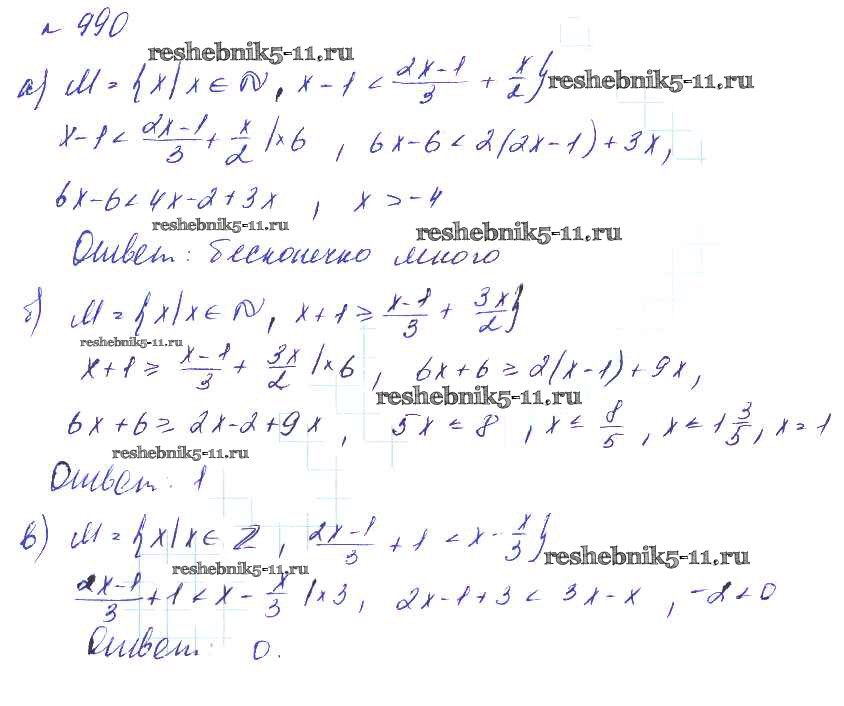 № 990
reshebnik5-11.ru
а) M = {x | x ∈ N, x - 1 < (2x-1)/3 + x/2} reshebnik5-11.ru
x-1 < (2x-1)/3 + x/2 | ×6, 6x-6 < 2(2x-1)+3x,
6x-6 < 4x-2+3x, x > -4
reshebnik5-11.ru reshebnik5-11.ru
Ответ: бесконечно много
б) M = {x | x ∈ N, x+1 ≥ (x-1)/3 + 3x/2}
reshebnik5-11.ru
x+1 ≥ (x-1)/3 + 3x/2 | ×6, 6x+6 ≥ 2(x-1)+9x,
reshebnik5-11.ru
6x+6 ≥ 2x-2+9x, 5x ≤ 8, x ≤ 8/5, x ≤ 1 3/5, x = 1
reshebnik5-11.ru
Ответ: 1
в) M = {x | x ∈ Z, (2x-1)/3 + 1 < x - x/3}
reshebnik5-11.ru
reshebnik5-11.ru
(2x-1)/3 + 1 < x - x/3 | ×3, 2x-1+3 < 3x-x, -2<0
Ответ: 0.